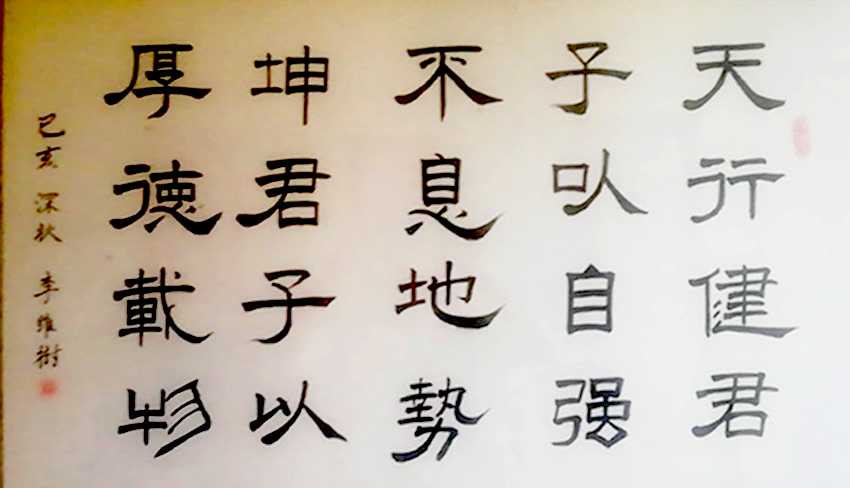 天行健君
子以自强
不息地勢
坤君子以
厚德載物
己亥深秋 李維樹